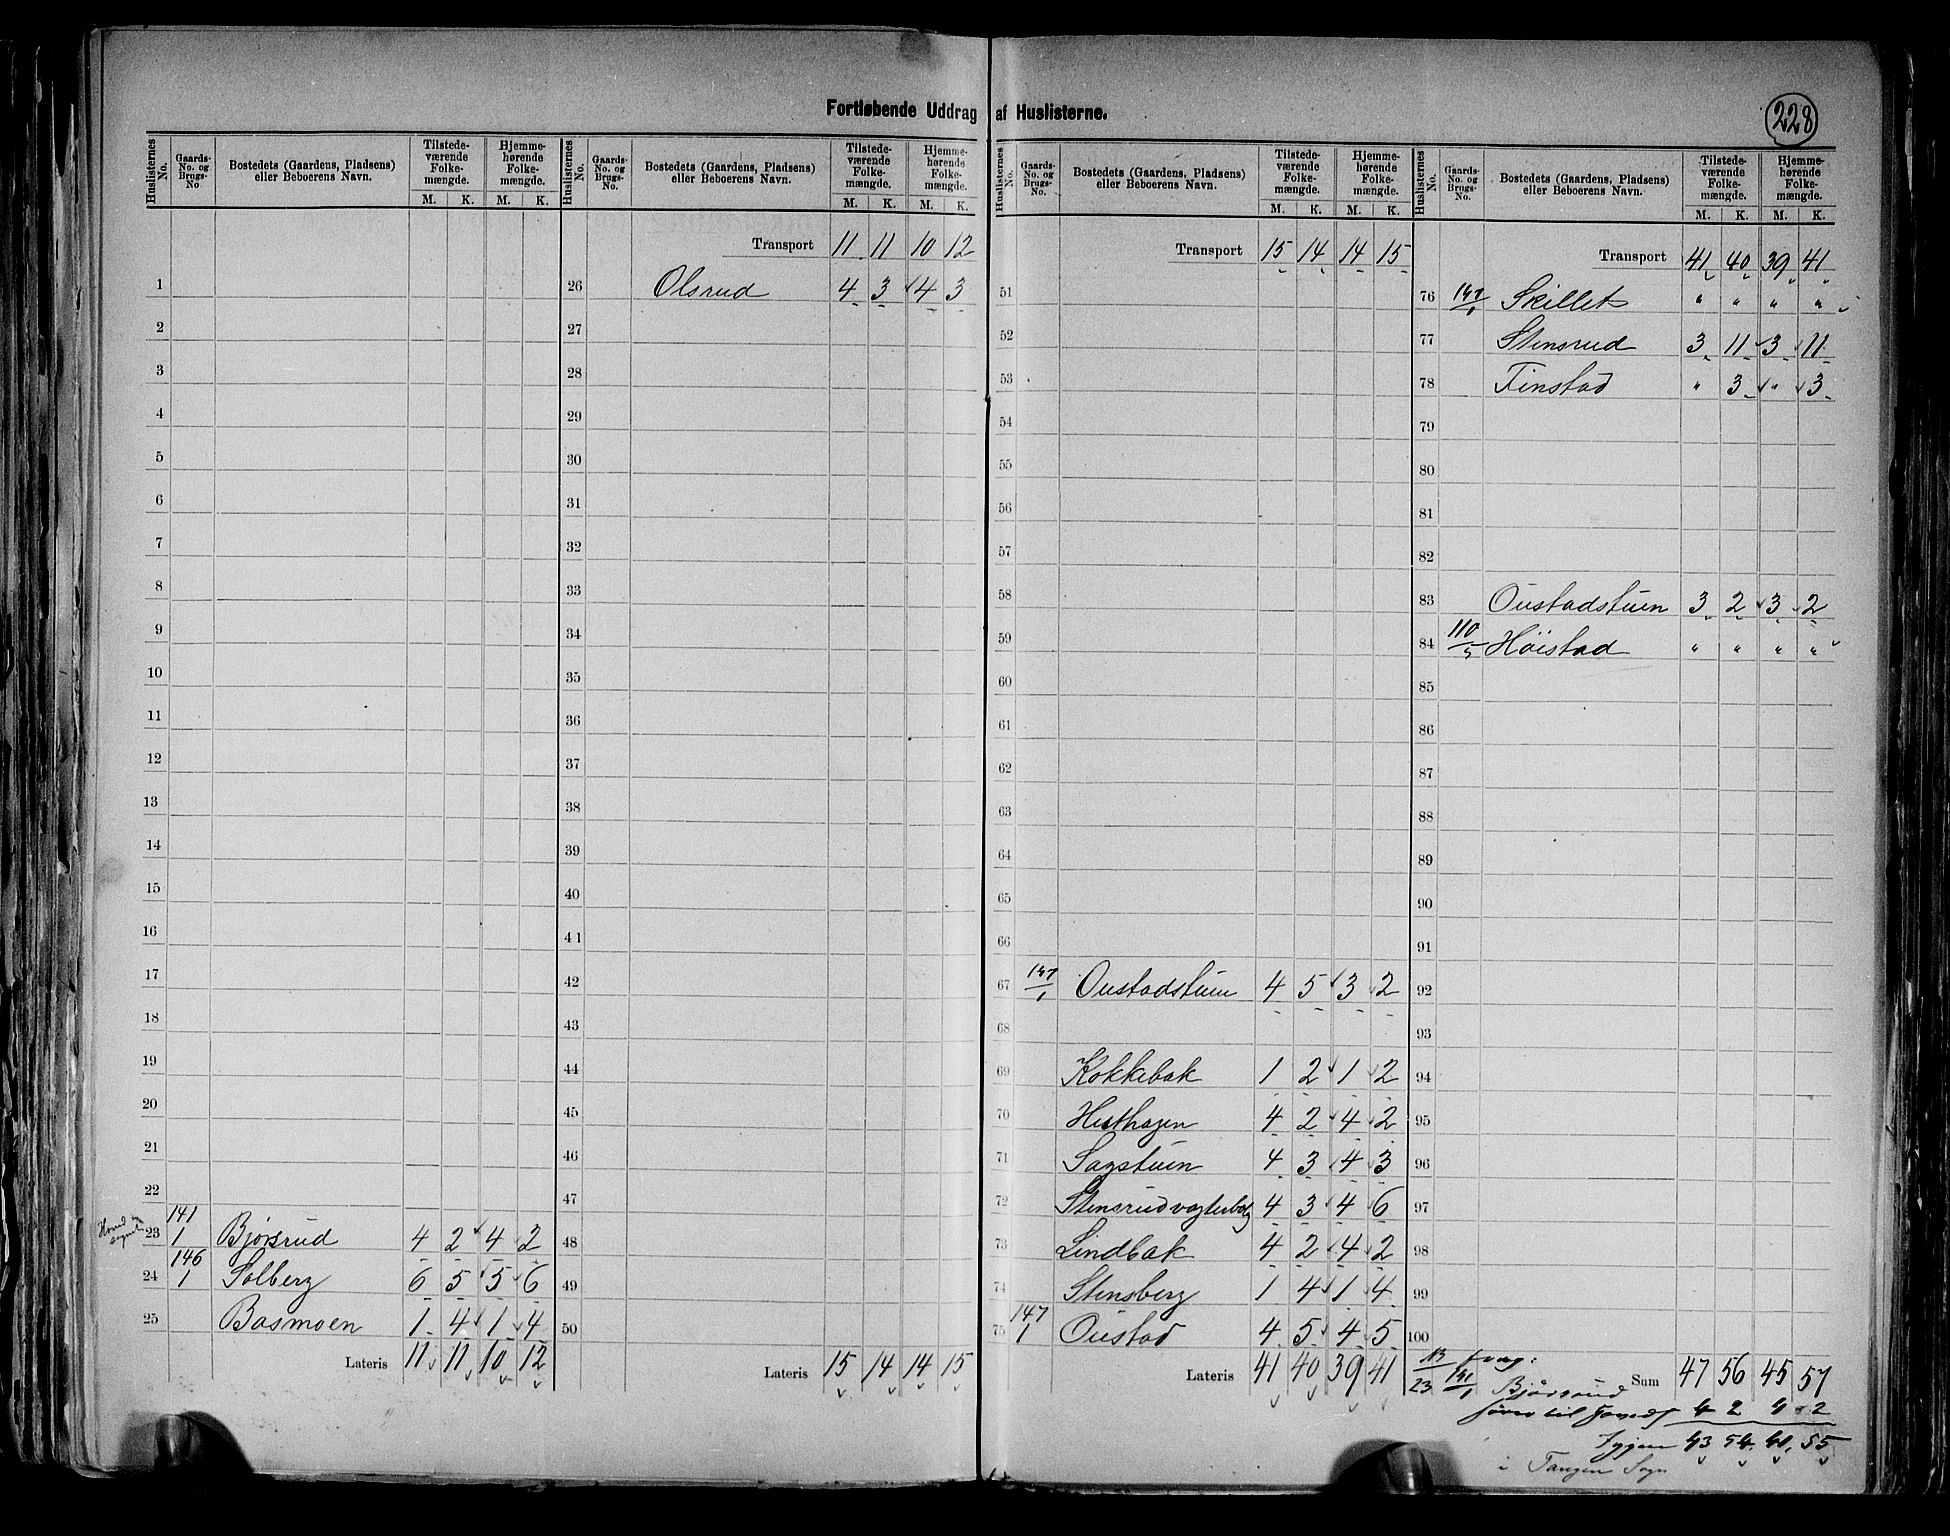 Fortløbende Uddrag af Huslisterne.
228
Huslisternes No. | Gaards-No. og Brugs-No | Bostedets (Gaardens, Pladsens) eller Beboerens Navn. | Tilstede-værende Folke-mængde. M. K. | Hjemme-hørende Folke-mængde. M. K.
1
2
3
4
5
6
7
8
9
10
11
12
13
14
15
16
17
18
19
20
21
22
23 141/1 Bjørsrud 4 2 4 2
24 146/1 Solberg 6 5 5 6
25 Basmoen 1 4 1 4
Lateris 11 11 10 12
Huslisternes No. | Gaards-No. og Brugs-No. | Bostedets (Gaardens, Pladsens) eller Beboerens Navn. | Tilstede-værende Folke-mængde. M. K. | Hjemme-hørende Folke-mængde. M. K.
Transport 11 11 10 12
26 Olsrud 4 3 4 3
27
28
29
30
31
32
33
34
35
36
37
38
39
40
41
42
43
44
45
46
47
48
49
50
Lateris 15 14 14 15
Huslisternes No. | Gaards-No. og Brugs-No. | Bostedets (Gaardens, Pladsens) eller Beboerens Navn. | Tilstede-værende Folke-mængde. M. K. | Hjemme-hørende Folke-mængde. M. K.
Transport 15 14 14 15
51
52
53
54
55
56
57
58
59
60
61
62
63
64
65
66
67 147/1 Oustadstuen 4 5 3 2
68
69 Kokkebak 1 2 1 2
70 Hesthagen 4 2 4 2
71 Sagstuen 4 3 4 3
72 Stensrudvogterbolg 4 3 4 6
73 Lindbak 4 2 4 2
74 Stensberg 1 4 1 4
75 147/1 Oustad 4 5 4 5
Lateris 41 40 39 41
Huslisternes No. | Gaards-No. og Brugs-No. | Bostedets (Gaardens, Pladsens) eller Beboerens Navn. | Tilstede-værende Folke-mængde. M. K. | Hjemme-hørende Folke-mængde. M. K.
Transport 41 40 39 41
76 147/1 Skillet " " " "
77 Stensrud 3 11 3 11
78 Finstad " 3 " 3
79
80
81
82
83 Oustadstuen 3 2 3 2
84 110/5 Høistad " " " "
85
86
87
88
89
90
91
92
93
94
95
96
97
98
99
100
Sum 47 56 45 57
23 141/1 Bjørsrud
4 2 4 2
43 54 41 55
i Tangen Sogn